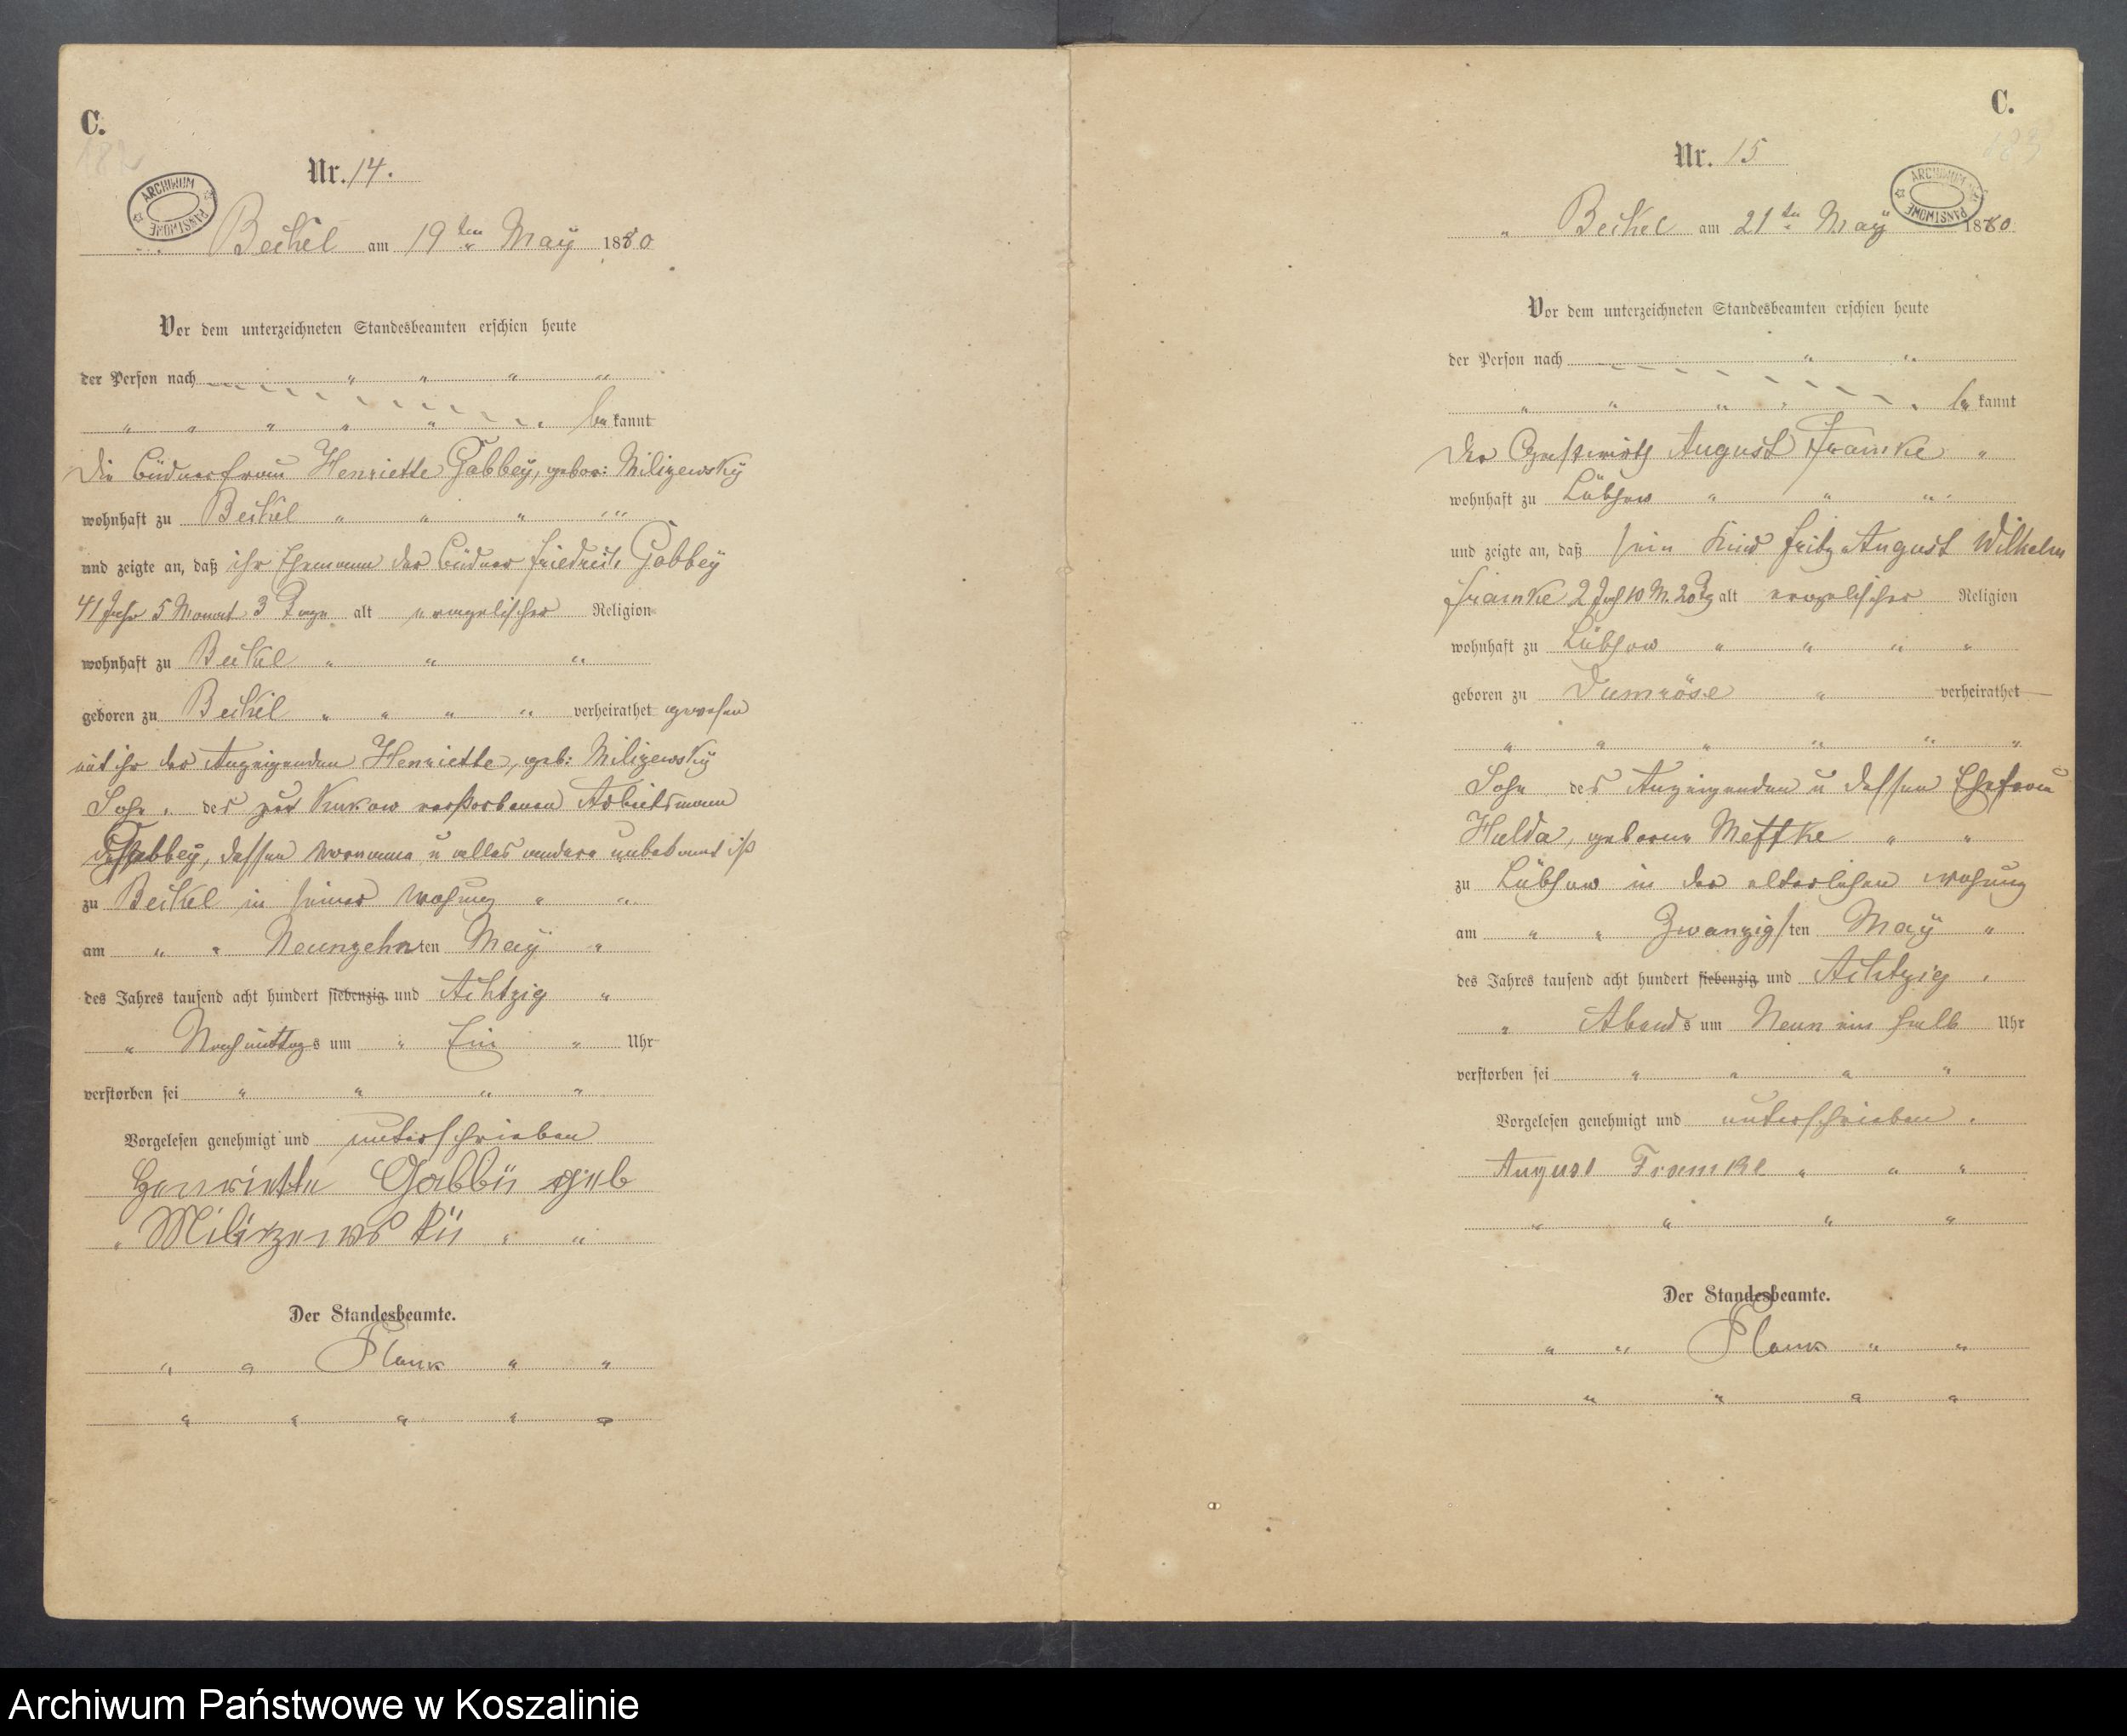 C.
182
Nr. 14.
ARCHIWUM PAŃSTWOWE
Beckel am 19ten May 1880
Vor dem unterzeichneten Standesbeamten erschien heute
der Person nach
be kannt
die Büdnerfrau Henriette Gabbey, gebor: Milizewsky
wohnhaft zu Beckel
und zeigte an, daß ihr Ehemann der Büdner Friedrich Gabbey
41 Jahr 5 Monat 3 Tage alt evangelischer Religion
wohnhaft zu Beckel
geboren zu Beckel verheirathet gewesen
mit ihr der Anzeigenden Henriette, geb: Milizewsky
Sohn des zu Kukow verstorbenen Arbeitsmann
Gabbey, dessen Vorname u alles andere unbekannt ist
zu Beckel in seiner Wohung
am Neunzehnten May
des Jahres tausend acht hundert siebenzig und Achtzig
Nachmittags um Ein Uhr
verstorben sei
Vorgelesen genehmigt und unterschrieben
Henriette Gabbii geb
Milirzewskii
Der Standesbeamte.
Plank
C.
183
Nr. 15
ARCHIWUM PAŃSTWOWE
Beckel am 21ten May 1880
Vor dem unterzeichneten Standesbeamten erschien heute
der Person nach
be kannt
der Gastwirth August Framke
wohnhaft zu Lübzow
und zeigte an, daß sein Kind Fritz August Wilhelm
Framke 2 Jah 10 M. 20 Tg alt evangelischer Religion
wohnhaft zu Lübzow
geboren zu Dumröse verheirathet
Sohn des Anzeigenden u dessen Ehefrau
Hulda, geborne Meffke
zu Lübzow in der elterlichen Wohung
am Zwanzigsten May
des Jahres tausend acht hundert siebenzig und Achtzig
Abends um Neun ein halb Uhr
verstorben sei
Vorgelesen genehmigt und unterschrieben.
August Framke
Der Standesbeamte.
Plank
Archiwum Państwowe w Koszalinie